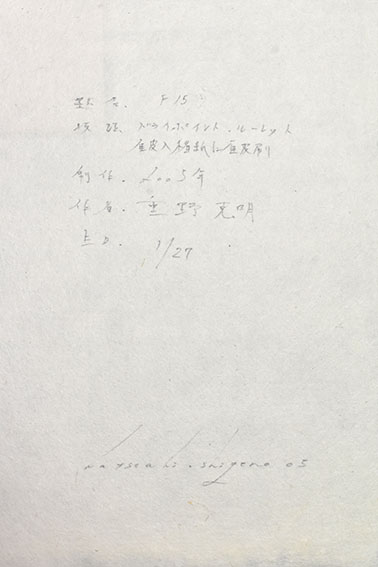 題名. F 15
技法. ドライポイント. ルーレット
雁皮入楮紙に雁皮刷
制作. 2005年
作者. 重野克明
E.D. 1/27
Katseaki. Shigeno 05